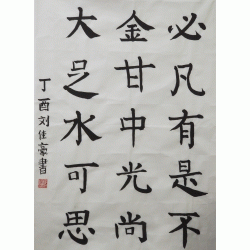 必凡有是不
金甘中光尚
大足水可思
丁酉刘佳豪書